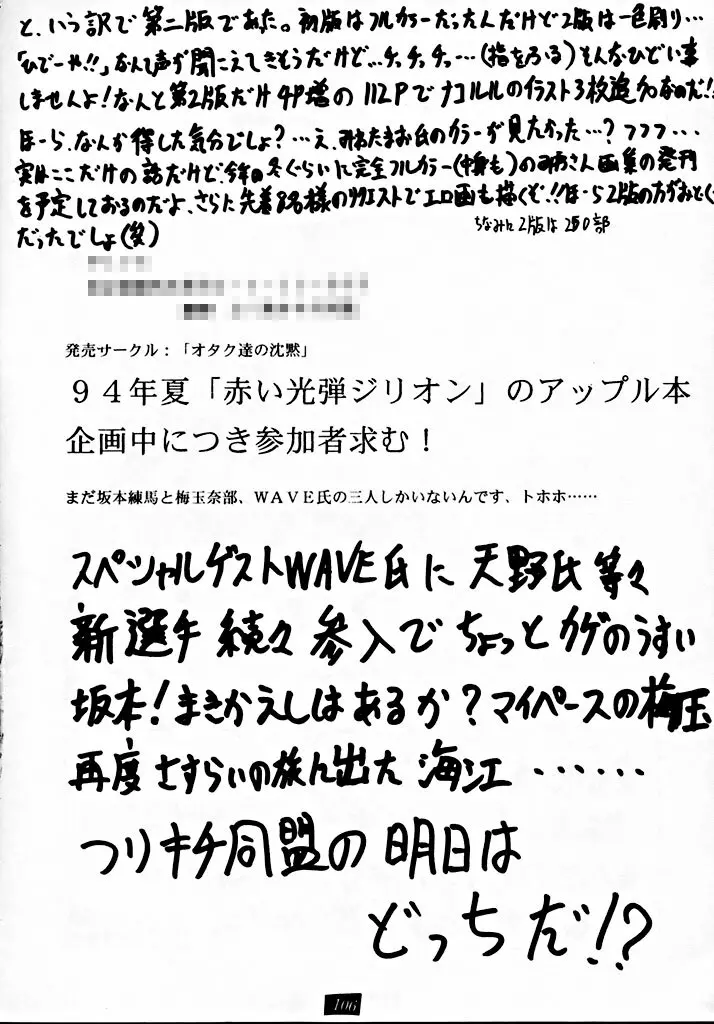 と、いう訳で第二版であた。初版はフルカラーだったんだけど2版は一色刷り…
「ひでーや!!」なんて声が聞こえてきそうだけど…チッチッチッ…(指をふる)そんなひどい事
しませんよ!なんと第2版だけ4P増の112Pでナコルルのイラスト3枚追加なのだ!!
ほーら、なんか得した気分でしょ?…え、みねたまお氏のカラーが見たかった…?フフフ…
実はここだけの話だけど、今年の冬ぐらいに完全フルカラー(中身も)の さん画集の発刊
を予定しておるのだよ、さらに先着 名様のリクエストでエロ画も描くぞ!!ほーら2版の方がおとく
だったでしょ(爆)
ちなみに2版は250部
発売サークル:「オタク達の沈黙」
94年夏「赤い光弾ジリオン」のアップル本
企画中につき参加者求む!
まだ坂本練馬と梅玉奈部、WAVE氏の三人しかいないんです、トホホ……
スペシャルゲストWAVE氏に天野氏等々
新選手続々参入でちょっとカゲのうすい
坂本!まきかえしはあるか?マイペースの梅玉
再度さすらいの旅に出た海江……
つりキチ同盟の明日は
どっちだ!?
106